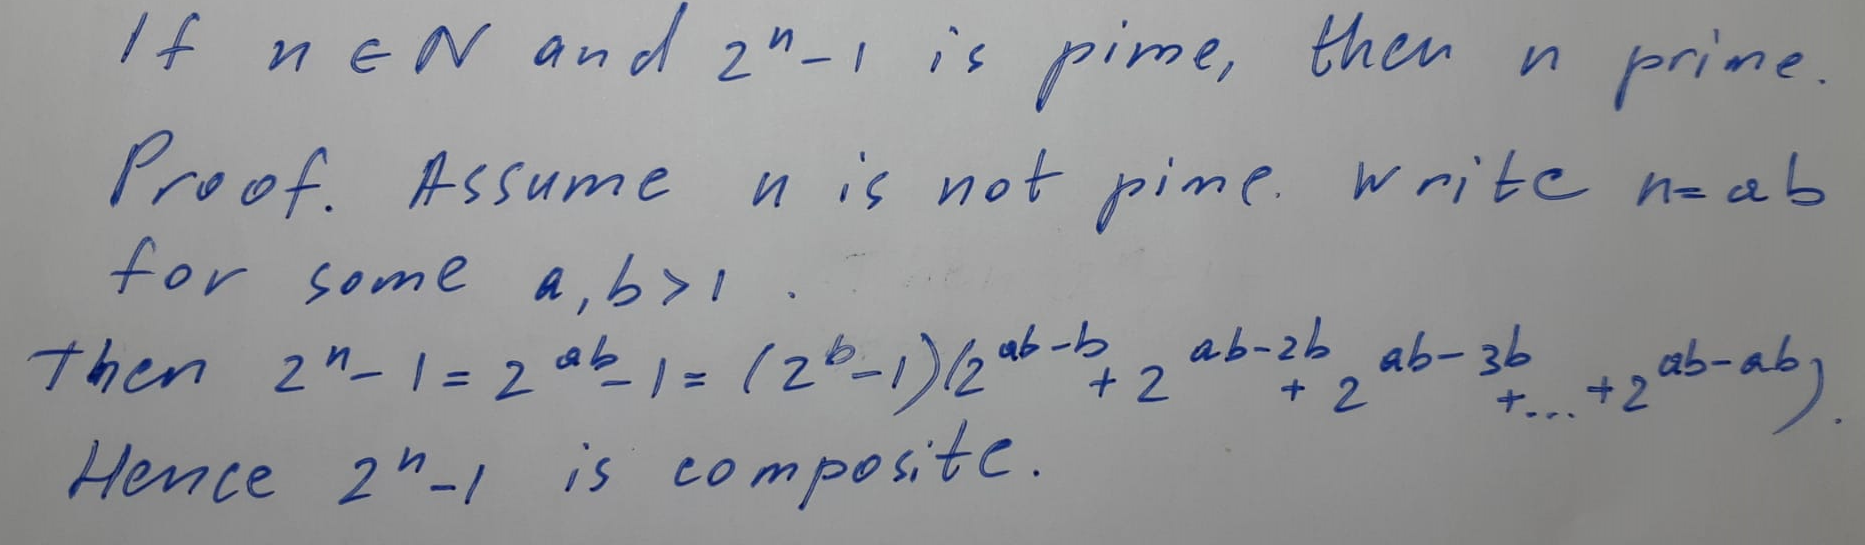 If n ∈ N and 2ⁿ-1 is pime, then n prime.
Proof. Assume n is not pime. Write n=ab
for some a,b>1.
Then 2ⁿ-1=2^{ab}-1=(2^b-1)(2^{ab-b}+2^{ab-2b}+2^{ab-3b}+...+2^{ab-ab}).
Hence 2ⁿ-1 is composite.